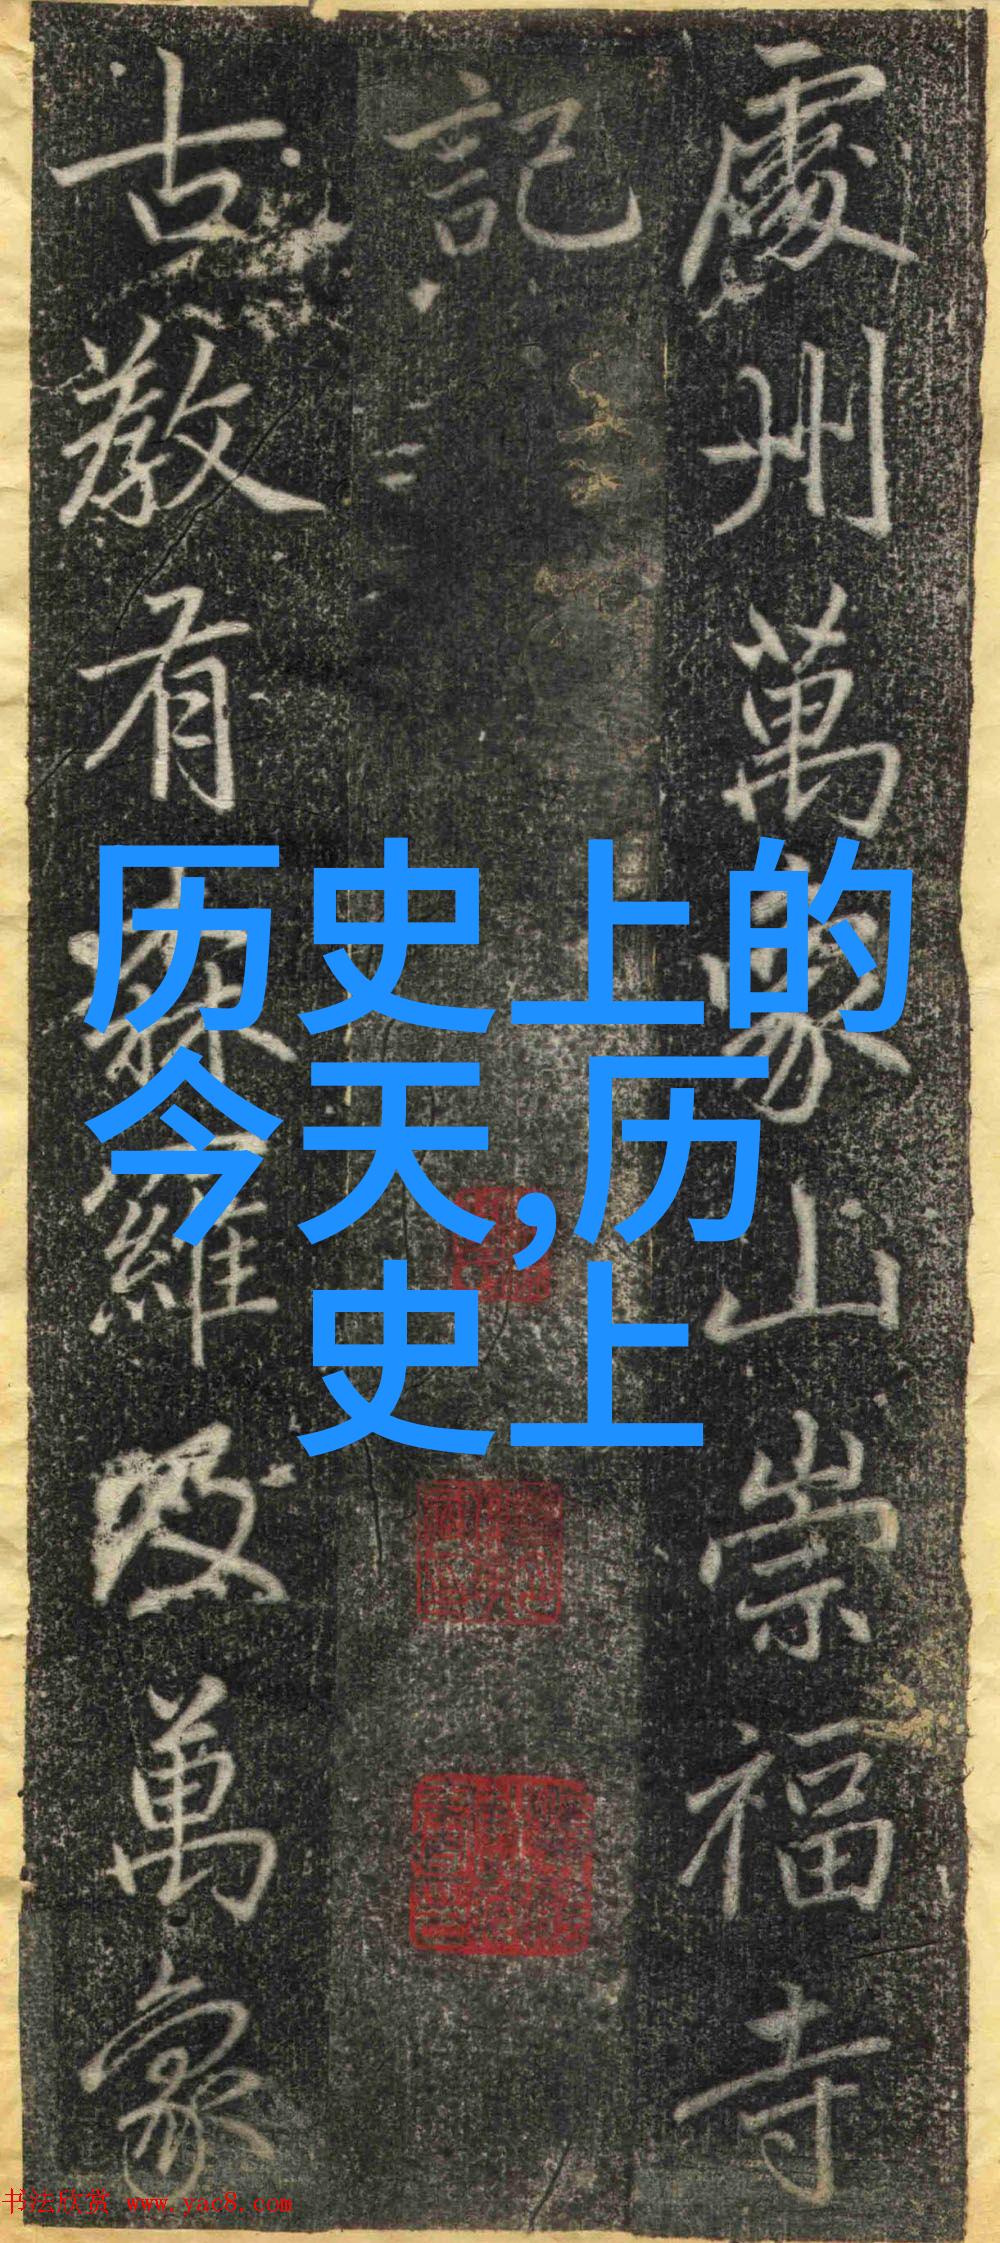 處州萬象山崇福寺
記
古教有森羅及萬象
历史上的
今天,历
史上
书法欣赏 www.yac8.com